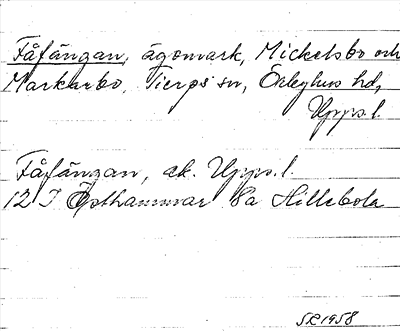 Fåfängan, ägomark, Mickelsbo och
Markarbo, Tierps sn, Örbyhus hd,
Upps. l.
Fåfängan, ak. Upps. l.
12 I Östhammar 8a Hillebola
SR 1958